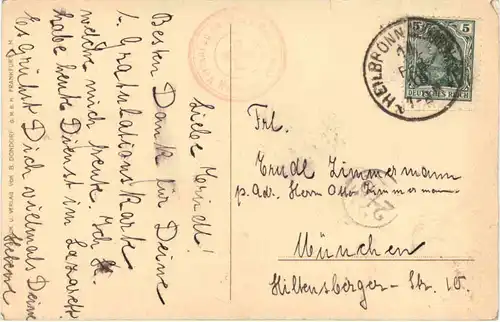 Liebe Trudl!
Besten Dank für Deine
l. Gratulationskarte
welche mich freute. Ich
habe heute Dienst im Lazarett.
Es grüßt Dich vielmals Deine
HEILBRONN
5 5
DEUTSCHES REICH
Frl.
Trudl Zimmermann
p. Adr. Herrn Otto Zimmermann
München
Hiltensberger-Str. 10.
U. VERLAG VON B. DONDORF G.M.B.H. FRANKFURT A. M.